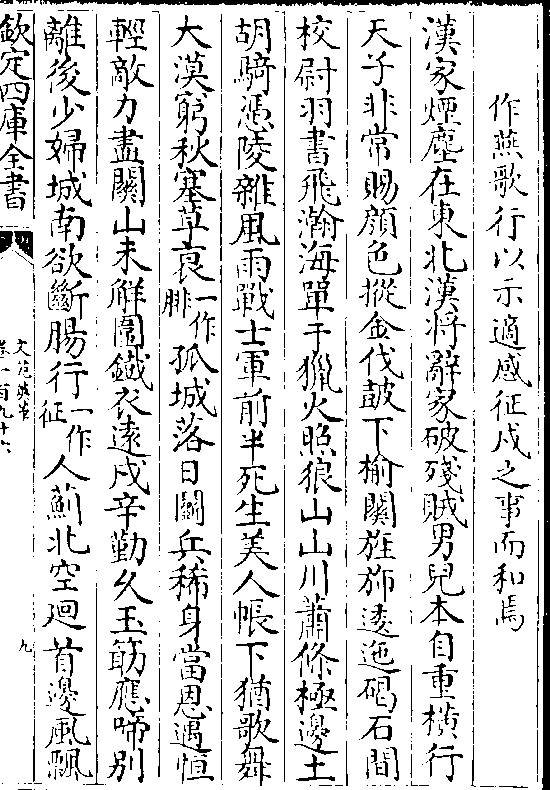 作燕歌行以示適感征戍之事而和焉
漢家煙塵在東北漢將辭家破殘賊男兒本自重橫行
天子非常賜顏色摐金伐鼓下榆關旌斾逶迤碣石間
校尉羽書飛瀚海單于獵火照狼山山川蕭條極邊土
胡騎憑陵雜風雨戰士軍前半死生美人帳下猶歌舞
大漠窮秋塞草衰一作腓孤城落日鬭兵稀身當恩遇恒
輕敵力盡關山未解圍鐵衣遠戍辛勤久玉筯應啼別
離後少婦城南欲斷腸行一作征人薊北空廻首邊風飄
欽定四庫全書
文苑英華
卷一百九十六
九